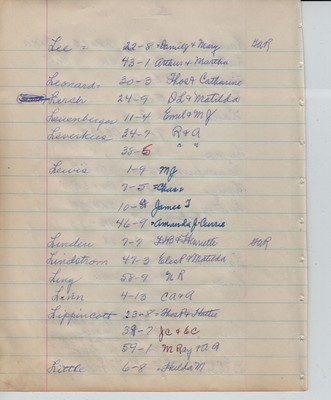 Lee = 22-8 Daniel & Mary GAR
43-1 Arthur & Martha
Leonard 20-3 Thos & Catharine
Lerch 24-9 D L & Matilda
Leuenberger 11-4 Emil & M J
Leverkus 34-7 R & A
38-5 " "
Lewis 1-9 M J
7-5 Chas
10-9 James T
46-9 Amanda J
Linden 7-7 & Henrietta GAR
Lindstrom 47-3 & Matilda
Ling 58-9 N R
4-13 C A & A
Lippincott 23-8 Thos P & Hettie
39-7 J C & S C
59-1 M Ray & A A
Little 6-8 Hulda M